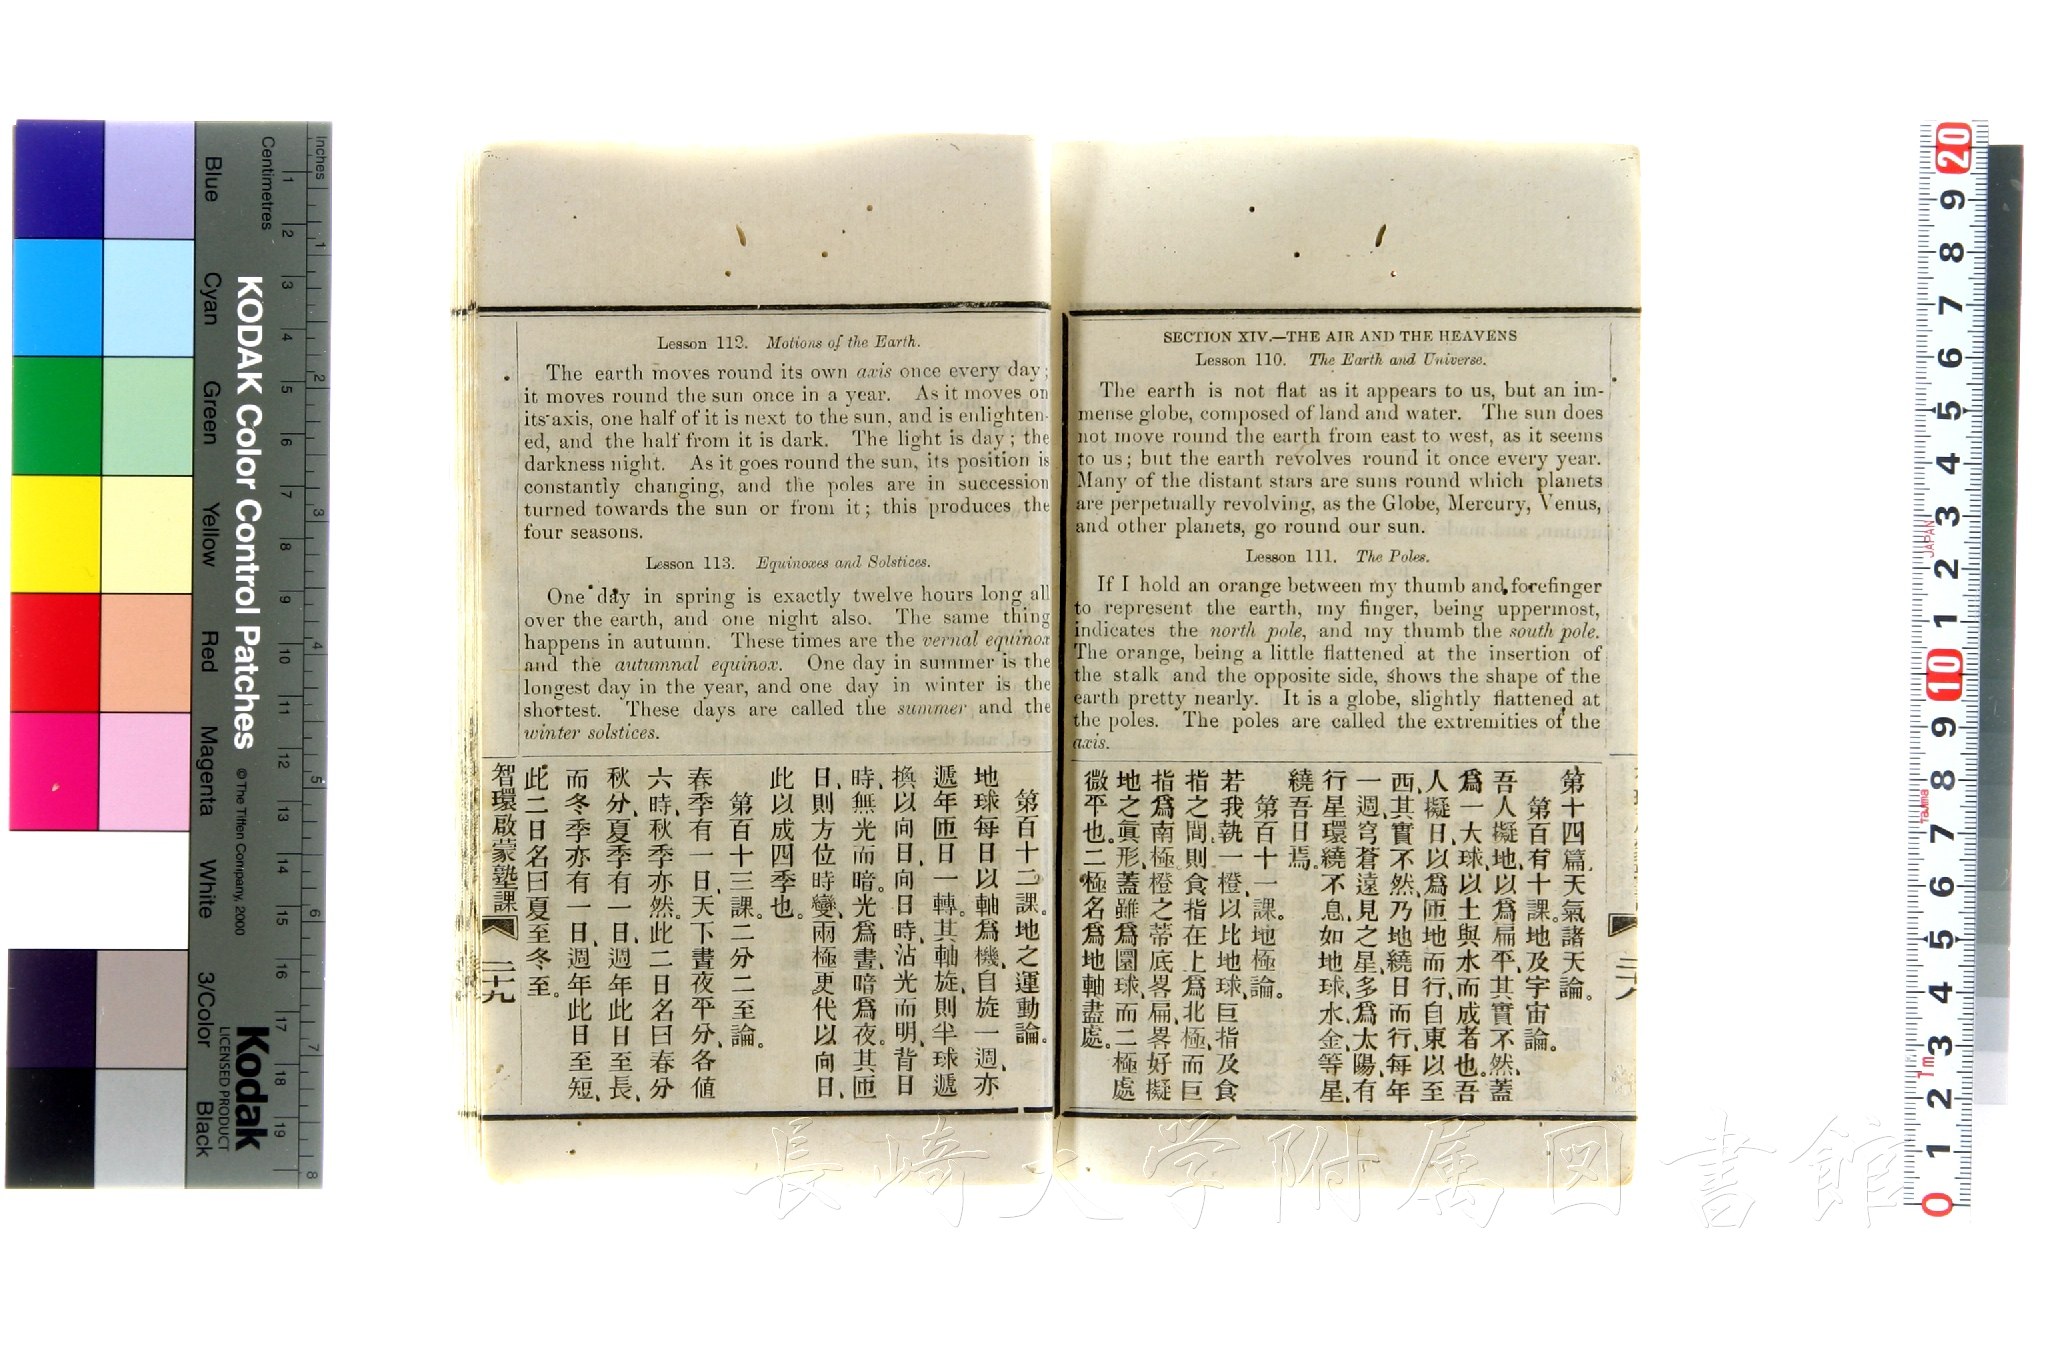 SECTION XIV.—THE AIR AND THE HEAVENS
Lesson 110. The Earth and Universe.
The earth is not flat as it appears to us, but an im-
mense globe, composed of land and water. The sun does
not move round the earth from east to west, as it seems
to us; but the earth revolves round it once every year.
Many of the distant stars are suns round which planets
are perpetually revolving, as the Globe, Mercury, Venus,
and other planets, go round our sun.
Lesson 111. The Poles.
If I hold an orange between my thumb and forefinger
to represent the earth, my finger, being uppermost,
indicates the north pole, and my thumb the south pole.
The orange, being a little flattened at the insertion of
the stalk and the opposite side, shows the shape of the
earth pretty nearly. It is a globe, slightly flattened at
the poles. The poles are called the extremities of the
axis.
第十四篇、天氣諸天論。
第百有十課。地及宇宙論。
吾人擬地、以爲扁平、其實不然、蓋
爲一大球、以土與水而成者也。吾
人擬日、以爲匝地而行、自東以至
西、其實不然、乃地繞日而行、每年
一週、穹蒼遠見之星、多爲太陽、有
行星環繞不息、如地球、水、金、等星、
繞吾日焉。
第百十一課。地極論。
若我執一橙、以比地球、巨指及食
指之間、則食指在上爲北極、而巨
指爲南極、橙之蒂底畧扁、畧好擬
地之眞形、蓋雖爲圜球、而二極處
微平也。二極名爲地軸盡處。
Lesson 112. Motions of the Earth.
The earth moves round its own axis once every day;
it moves round the sun once in a year. As it moves on
its axis, one half of it is next to the sun, and is enlighten-
ed, and the half from it is dark. The light is day; the
darkness night. As it goes round the sun, its position is
constantly changing, and the poles are in succession
turned towards the sun or from it; this produces the
four seasons.
Lesson 113. Equinoxes and Solstices.
One day in spring is exactly twelve hours long all
over the earth, and one night also. The same thing
happens in autumn. These times are the vernal equinox
and the autumnal equinox. One day in summer is the
longest day in the year, and one day in winter is the
shortest. These days are called the summer and the
winter solstices.
第百十二課。地之運動論。
地球每日以軸爲機、自旋一週、亦
遞年匝日一轉。其軸旋、則半球遞
換以向日、向日時、沾光而明、背日
時、無光而暗。光爲晝、暗爲夜。其匝
日、則方位時變、兩極更代以向日、
此以成四季也。
第百十三課。二分二至論。
春季有一日、天下晝夜平分、各値
六時、秋季亦然。此二日名曰春分
秋分、夏季有一日、週年此日至長、
而冬季亦有一日、週年此日至短、
此二日名曰夏至冬至。
智環啟蒙塾課 二十九
KODAK Color Control Patches
© The Tiffen Company, 2000
Kodak
LICENSED PRODUCT
Inches
1 2 3 4 5 6 7 8
Centimetres
1 2 3 4 5 6 7 8 9 10 11 12 13 14 15 16 17 18 19
Blue
Cyan
Green
Yellow
Red
Magenta
White
3/Color
Black
20 9 8 7 6 5 4 3 2 1 10 9 8 7 6 5 4 3 2 1 0
JAPAN
Tajima
1m
長崎大学附属図書館